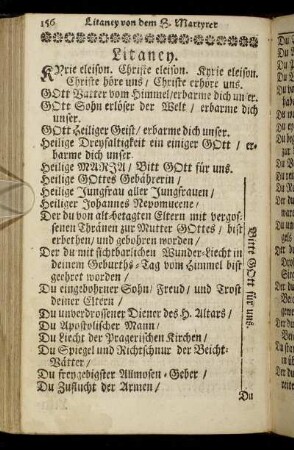 156 Litaney von dem H. Martyrer
Litaney.
KYrie eleison. Christe eleison. Kyrie eleison.
Christe höre uns / Christe erhöre uns.
GOtt Vatter vom Himmel/erbarme dich unser.
GOtt Sohn erlöser der Welt / erbarme dich
unser.
GOtt Heiliger Geist / erbarme dich unser.
Heilige Dreyfaltigkeit ein einiger GOtt / er-
barme dich unser
Heilige MARIA / Bitt GOtt für uns.
Heilige GOttes Gebährerin /
Heilige Jungfrau aller Jungfrauen /
Heiliger Johannes Nepomucene /
Der du von alt-betagten Eltern mit vergos-
senen Thränen zur Mutter GOttes / bist
erbethen / und gebohren worden /
Der du mit sichtbarlichen Wunder-Liecht in
deinem Geburths-Tag vom Himmel bist
geehret worden /
Du eingebohrner Sohn / Freud / und Trost
deiner Eltern /
Du unverdrossener Diener des H. Altars /
Du Apostolischer Mann /
Du Liecht der Pragerischen Kirchen /
Du Spiegel und Richtschnur der Beicht-
Vätter /
Du freygebigster Allmosen-Geber /
Du Zuflucht der Armen /
Bitte GOtt für uns.
Du